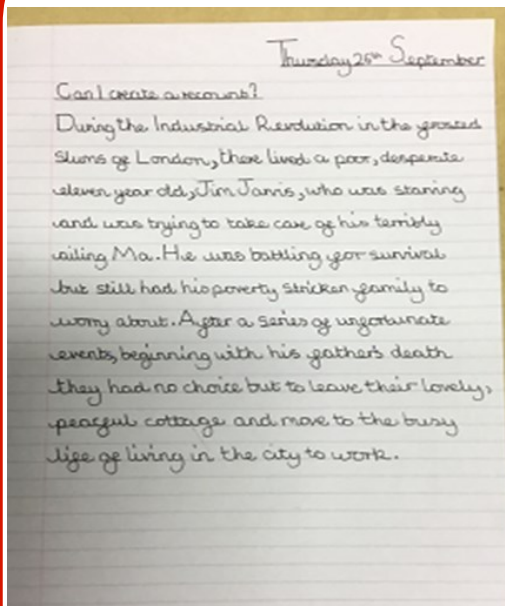 Thursday 26th September
Can I create a recount?
During the Industrial Revolution in the frosted
slums of London, there lived a poor, desperate
eleven year old, Jim Jarvis, who was starving
and was trying to take care of his terribly
ailing Ma. He was battling for survival
but still had his poverty stricken family to
worry about. After a series of unfortunate
events, beginning with his father's death
they had no choice but to leave their lovely,
peaceful cottage and move to the busy
life of living in the city to work.